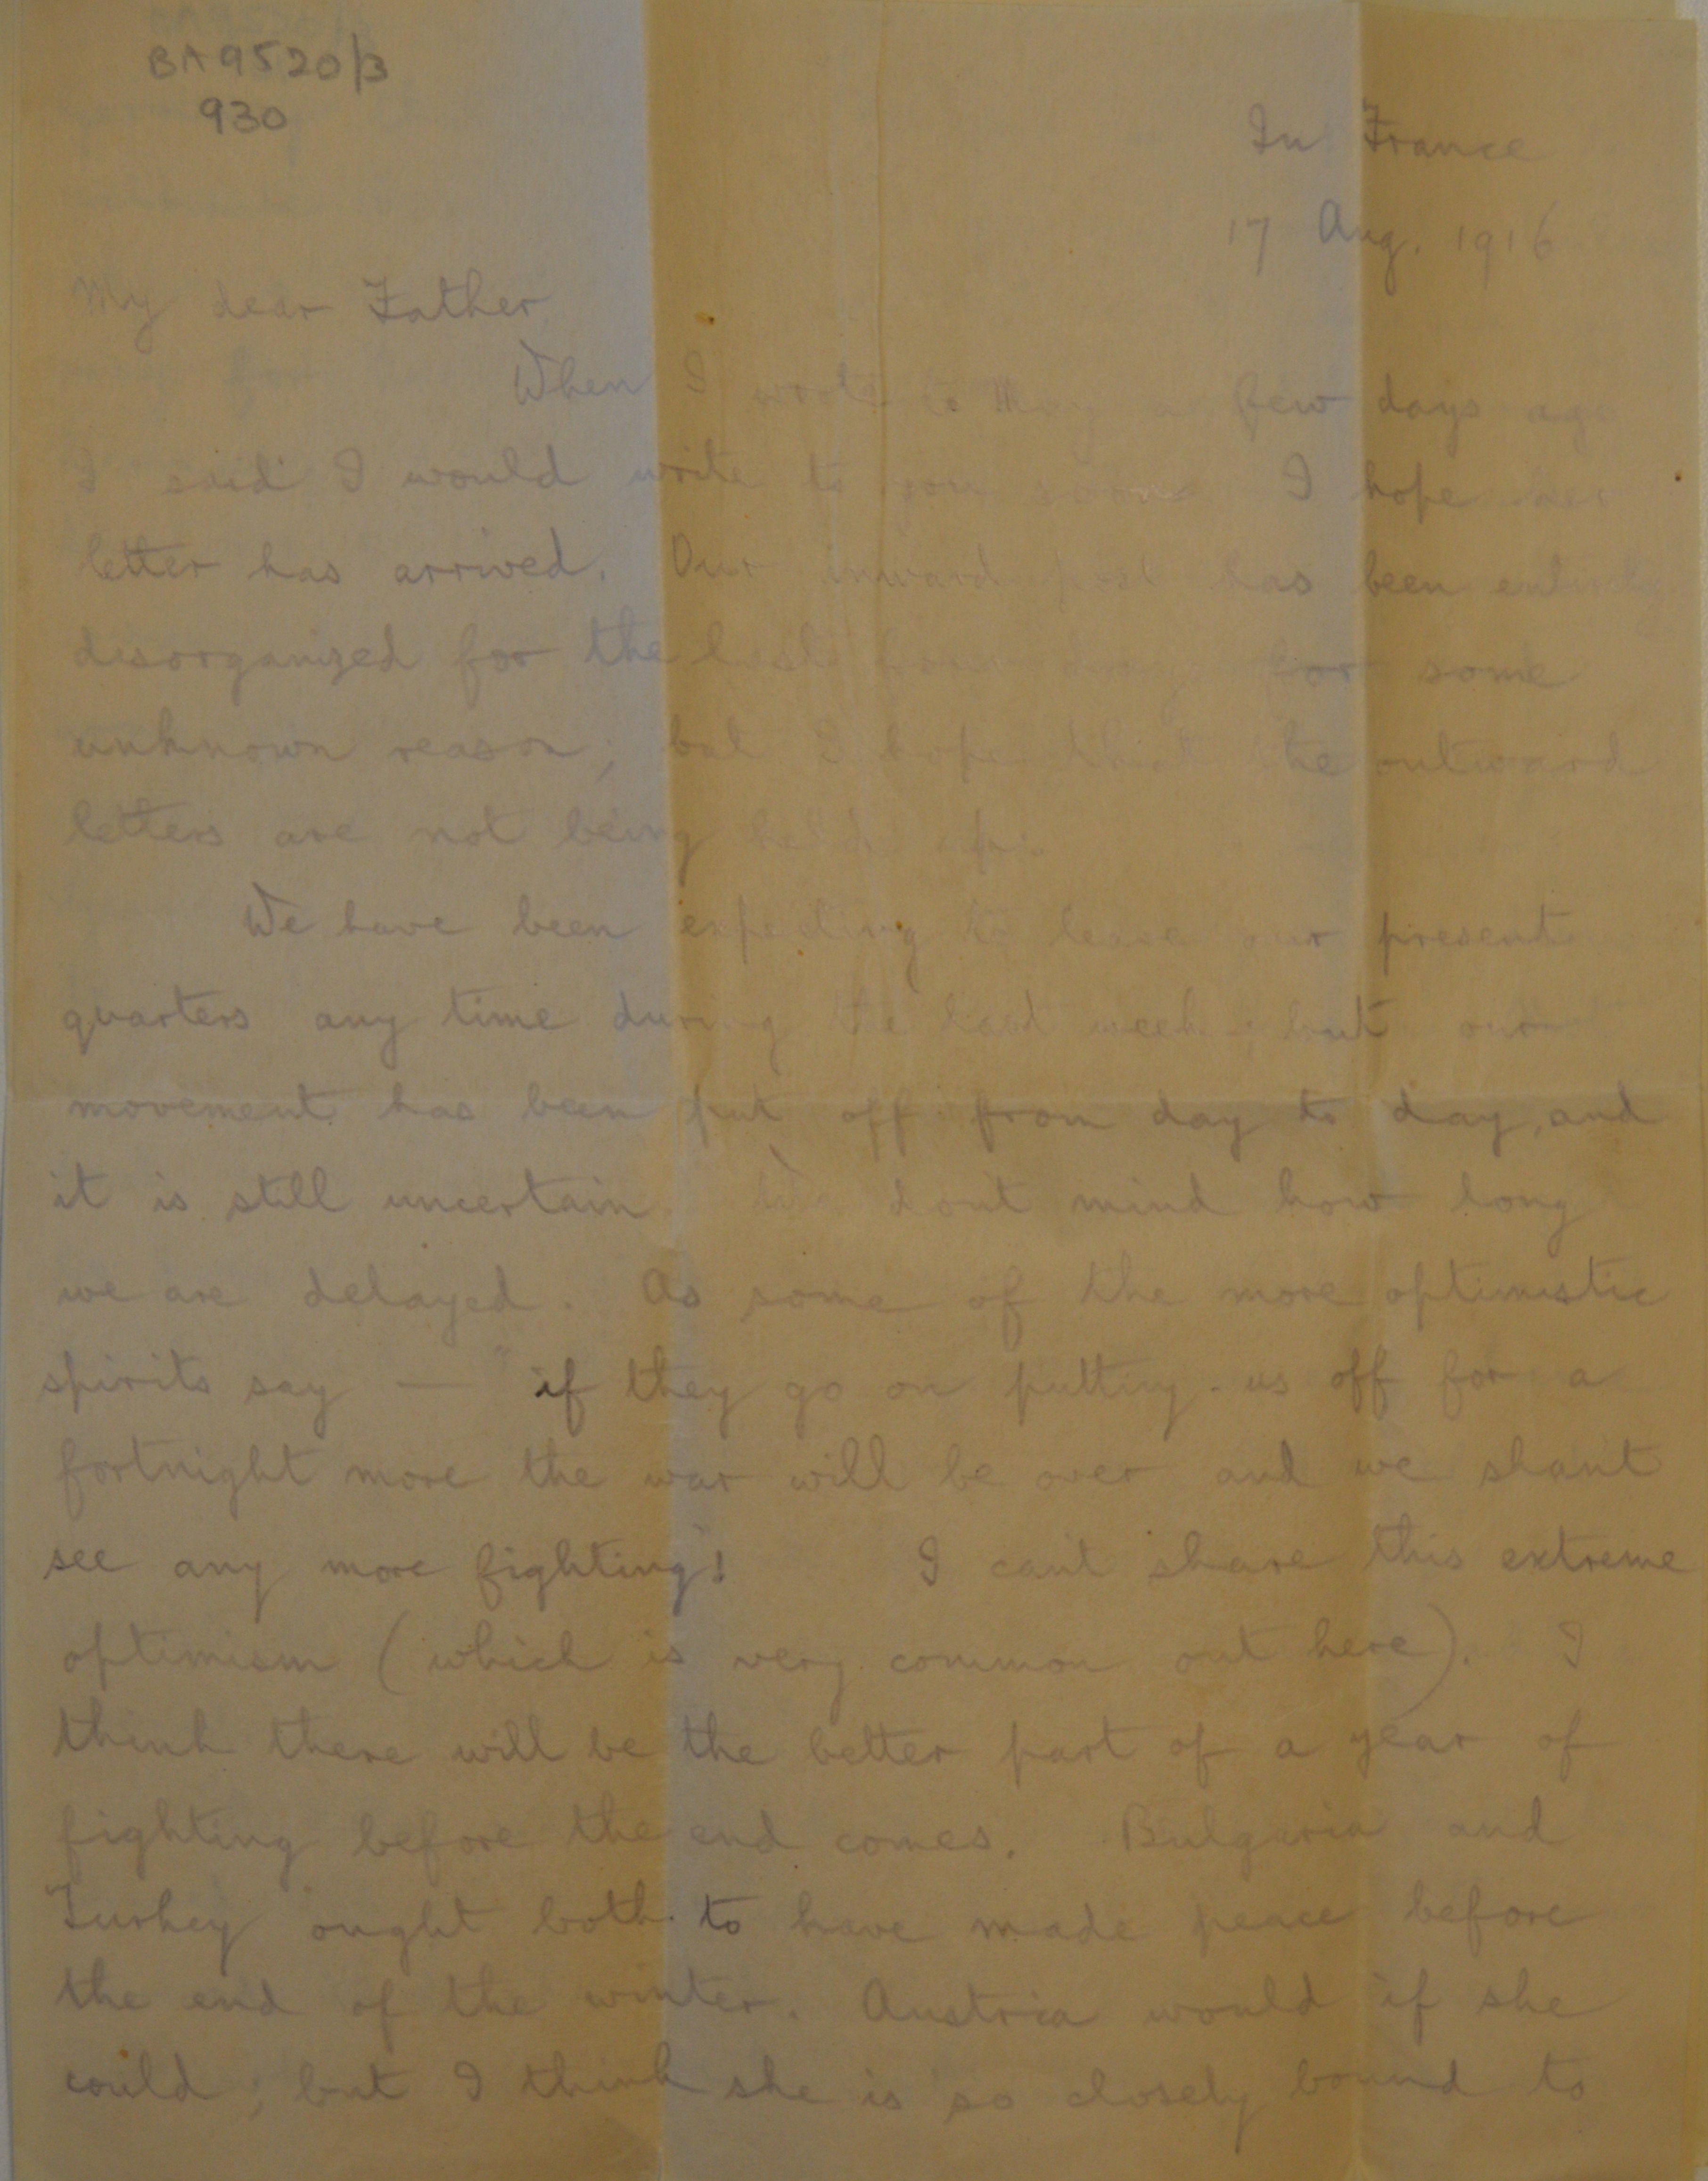 BA9520/3
930
In France
17 Aug. 1916
My dear Father
When I wrote to May a few days ago
I said I would write to you soon. I hope her
letter has arrived. Our inward post has been entirely
disorganized for the last four days for some
unknown reason; but I hope that the outward
letters are not being held up.
We have been expecting to leave our present
quarters any time during the last week; but our
movement has been put off from day to day, and
it is still uncertain. We dont mind how long
we are delayed. As some of the more optimistic
spirits say — "if they go on putting us off for a
fortnight more the war will be over and we shant
see any more fighting"! I can't share this extreme
optimism (which is very common out here). I
think there will be the better part of a year of
fighting before the end comes. Bulgaria and
Turkey ought both to have made peace before
the end of the winter. Austria would if she
could; but I think she is so closely bound to